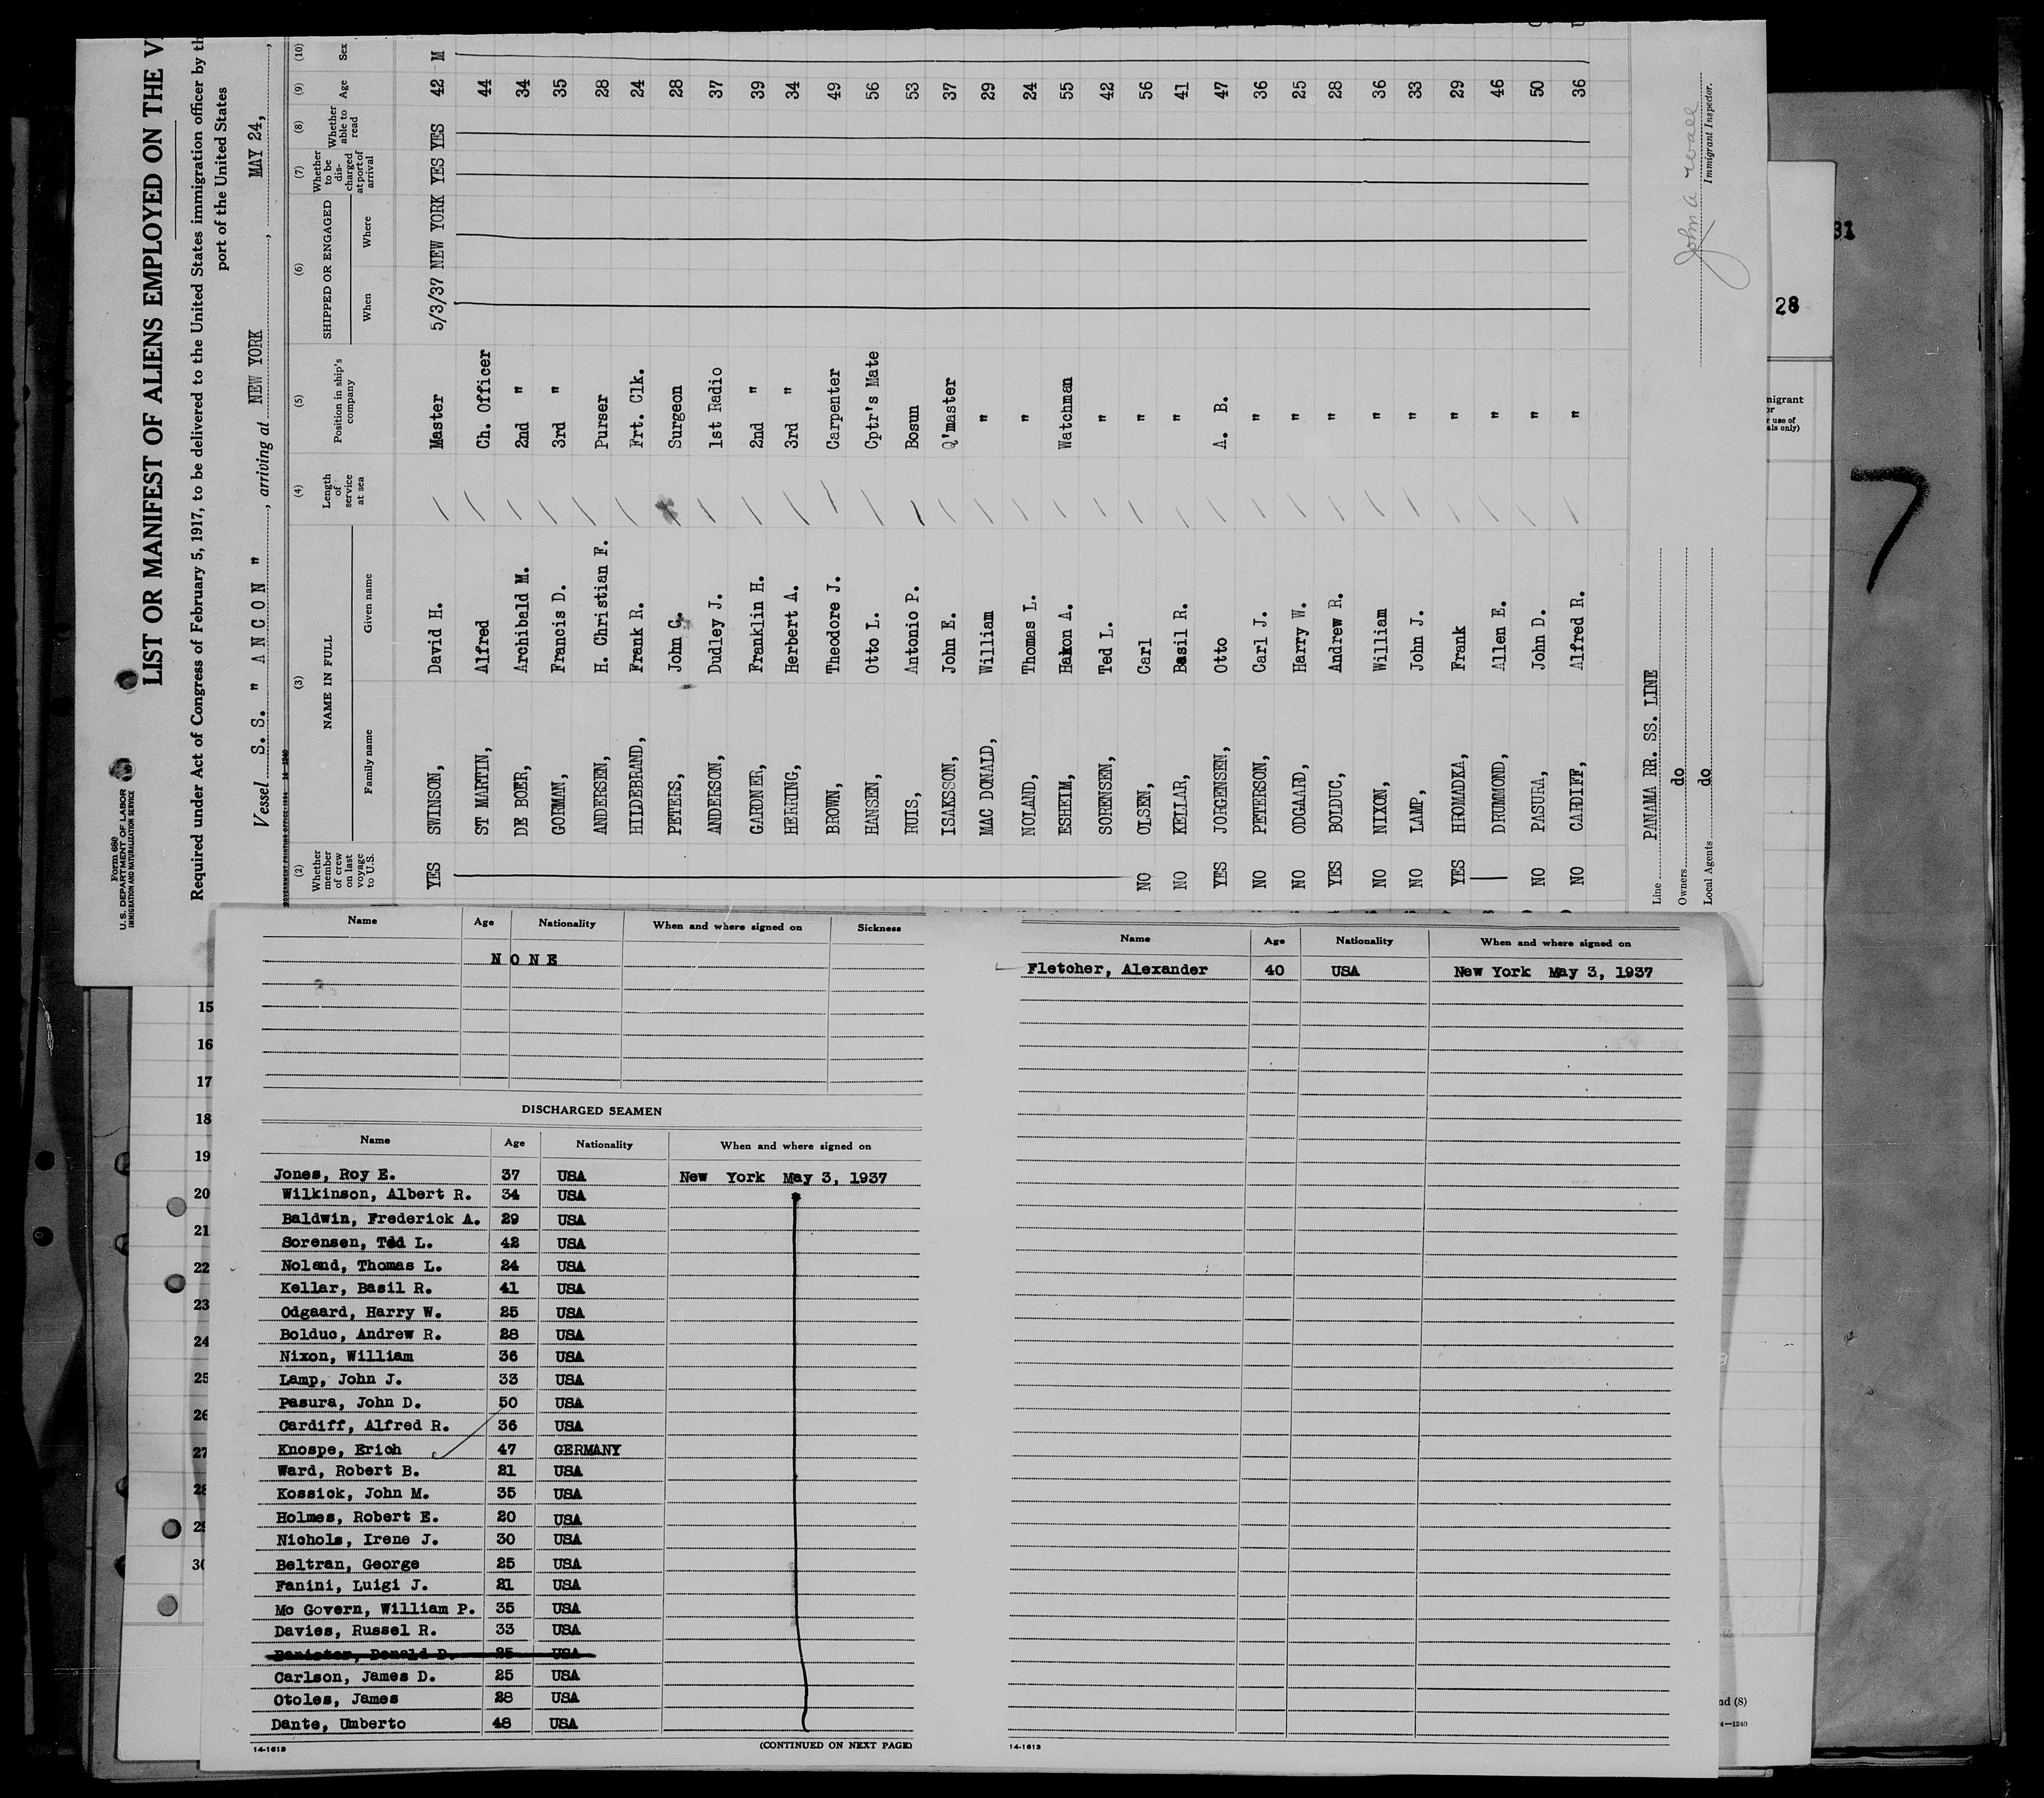 Form 680
U. S. DEPARTMENT OF LABOR
IMMIGRATION AND NATURALIZATION SERVICE
LIST OR MANIFEST OF ALIENS EMPLOYED ON THE
Required under Act of Congress of February 5, 1917, to be delivered to the United States immigration officer by
port of the United States
Vessel S. S. " A N C O N ", arriving at NEW YORK, MAY 24,
(2) (3) (4) (5) (6) (7) (8) (9) (10)
Whether member of crew on last voyage to U.S. NAME IN FULL Family name Given name Length of service at sea Position in ship's company SHIPPED OR ENGAGED When Where Whether to be discharged at port of arrival Whether able to read Age Sex
YES SWINSON, David H. Master 5/3/37 NEW YORK YES YES 42 M
ST MARTIN, Alfred Ch. Officer 44
DE BOER, Archibald M. 2nd " 34
GORMAN, Francis D. 3rd " 35
ANDERSEN, H. Christian F. Purser 28
HILDEBRAND, Frank R. Frt. Clk. 24
PETERS, John C. Surgeon 28
ANDERSON, Dudley J. 1st Radio 37
GARDNER, Franklin H. 2nd " 39
HERRING, Herbert A. 3rd " 34
BROWN, Theodore J. Carpenter 49
HANSEN, Otto L. Cptr's Mate 56
RUIS, Antonio P. Bosun 53
ISAKSSON, John E. Q'master 37
MAC DONALD, William " 29
NOLAND, Thomas L. " 24
ESHEIM, Hakon A. Watchman 55
SORENSEN, Ted L. " 42
NO OLSEN, Carl " 56
NO KELLAR, Basil R. " 41
YES JORGENSEN, Otto A. B. 47
NO PETERSON, Carl J. " 36
NO ODGAARD, Harry W. " 25
YES BOLDUC, Andrew R. " 28
NO NIXON, William " 36
NO LAMP, John J. " 33
YES HROMADKA, Frank " 29
DRUMMOND, Allen E. " 46
NO PASURA, John D. " 50
NO CARDIFF, Alfred R. " 36
Line PANAMA RR. SS. LINE
Owners do
Local Agents do
Immigrant Inspector.
31
28
7
Name Age Nationality When and where signed on Sickness
N O N E
DISCHARGED SEAMEN
Name Age Nationality When and where signed on
Jones, Roy E. 37 USA New York May 3, 1937
Wilkinson, Albert R. 34 USA
Baldwin, Frederick A. 29 USA
Sorensen, Ted L. 42 USA
Noland, Thomas L. 24 USA
Kellar, Basil R. 41 USA
Odgaard, Harry W. 25 USA
Bolduc, Andrew R. 28 USA
Nixon, William 36 USA
Lamp, John J. 33 USA
Pasura, John D. 50 USA
Cardiff, Alfred R. 36 USA
Knospe, Erich 47 GERMANY
Ward, Robert B. 21 USA
Kossick, John M. 35 USA
Holmes, Robert E. 20 USA
Nichols, Irene J. 30 USA
Beltran, George 25 USA
Fanini, Luigi J. 21 USA
Mc Govern, William P. 35 USA
Davies, Russel R. 33 USA
Banister, Donald D. 25 USA
Carlson, James D. 25 USA
Otoles, James 28 USA
Dante, Umberto 48 USA
14-1613 (CONTINUED ON NEXT PAGE)
Name Age Nationality When and where signed on
Fletcher, Alexander 40 USA New York May 3, 1937
14-1613
15
16
17
18
19
20
21
22
23
24
25
26
27
28
nd (8)
4—1240